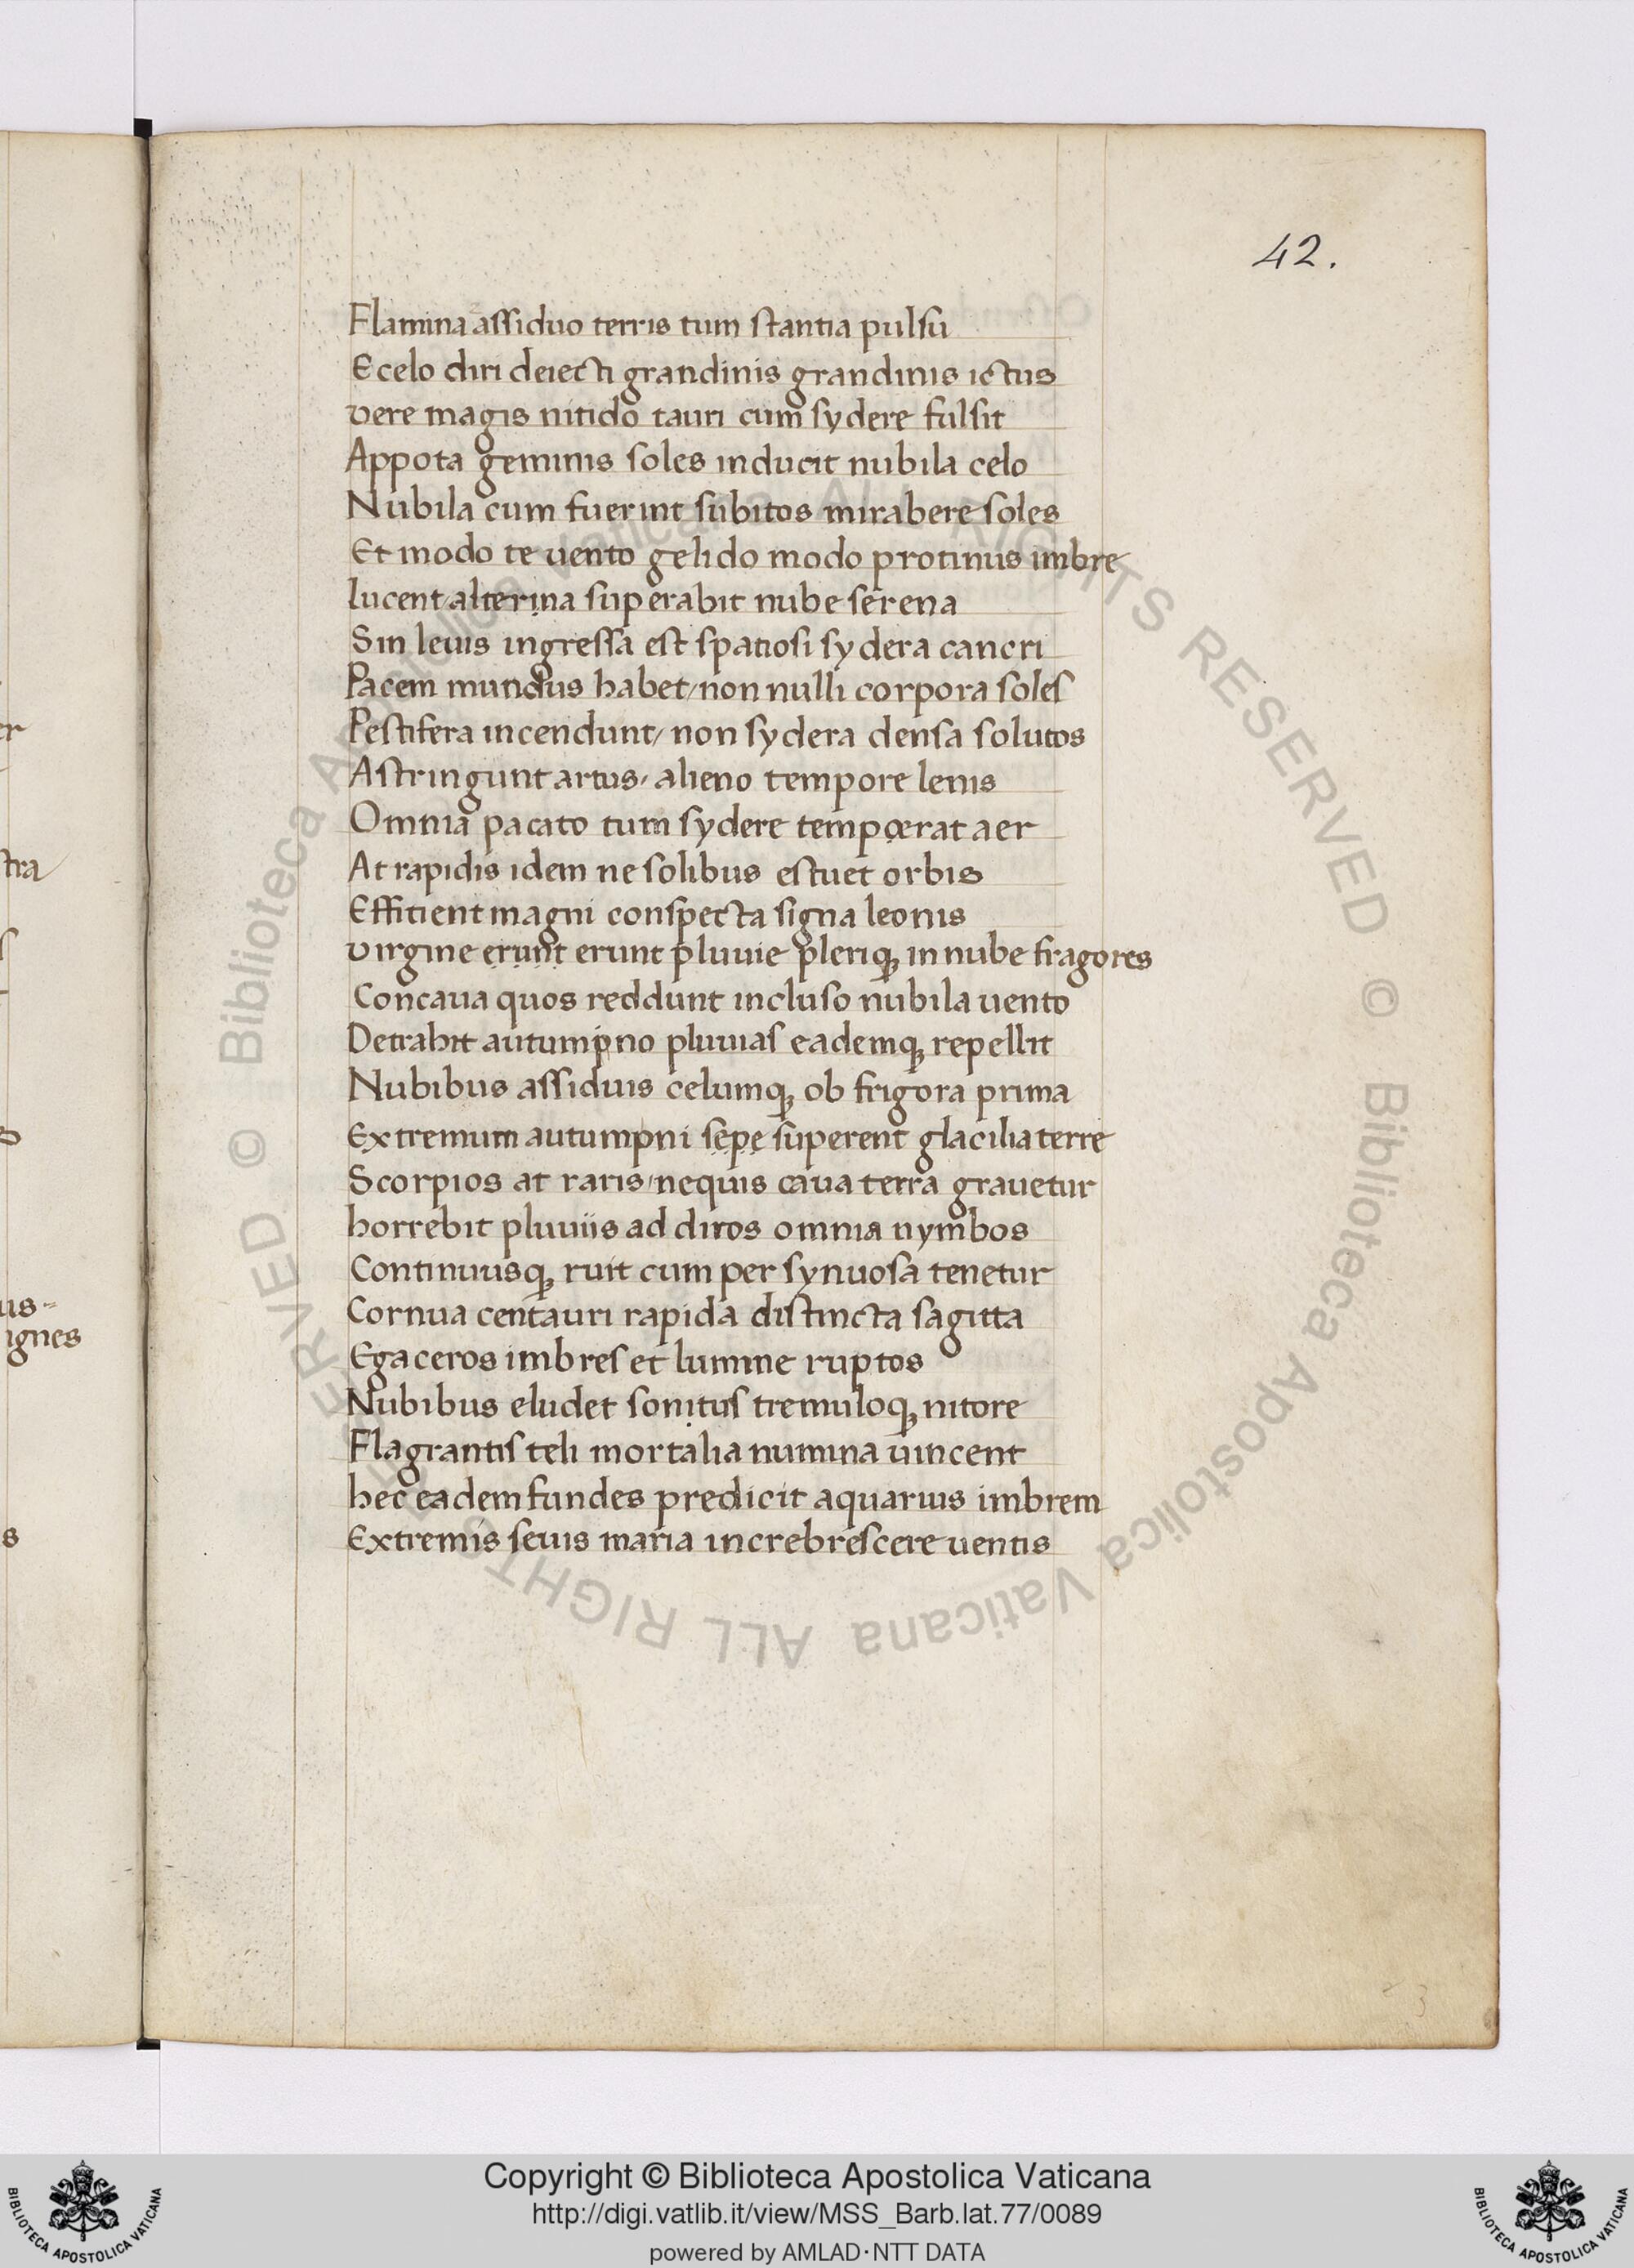 42.
Flamina assiduo terris tum stantia pulsu
E celo diri deiecti grandinis grandinis ictus
vere magis nitido tauri cum sydere fulsit
Appota geminis soles inducit nubila celo
Nubila cum fuerint subitos mirabere soles
Et modo te uento gelido modo protinus imbre
lucent/alterina superabit nube serena
Sin leuis ingressa est spatiosi sydera cancri
Pacem mundus habet/non nulli corpora soles
Pestifera incendunt/ non sydera densa solutos
Astringunt artus/ alieno tempore lenis
Omnia pacato tum sydere tempœrat aer
At rapidis idem ne solibus estuet orbis
Effitient magni conspecta signa leonis
virgine erunt erunt pluuie pleriq, in nube fragores
Concaua quos reddunt incluso nubila uento
Detrahit autumpno pluuias eademq, repellit
Nubibus assiduis celumq, ob frigora prima
Extremum autumpni sepe superent glacilia terre
Scorpios at raris/nequis caua terra grauetur
horrebit pluuiis ad diros omnia nymbos
Continuusq, ruit cum per synuosa tenetur
Cornua centauri rapida distincta sagitta
Egaceros imbres et lumine ruptos
Nubibus eludet sonitus tremuloq, nitore
Flagrantis teli mortalia numina uincent
hec eadem fundes predicit aquarius imbrem
Extremis seuis maria increbrescere uentis
er
stra
us-
ignes
s
3
© Biblioteca Apostolica Vaticana ALL RIGHTS RESERVED © Biblioteca Apostolica Vaticana ALL RIGHTS RESERVED
Copyright © Biblioteca Apostolica Vaticana
http://digi.vatlib.it/view/MSS_Barb.lat.77/0089
powered by AMLAD·NTT DATA
BIBLIOTECA APOSTOLICA VATICANA
BIBLIOTECA APOSTOLICA VATICANA